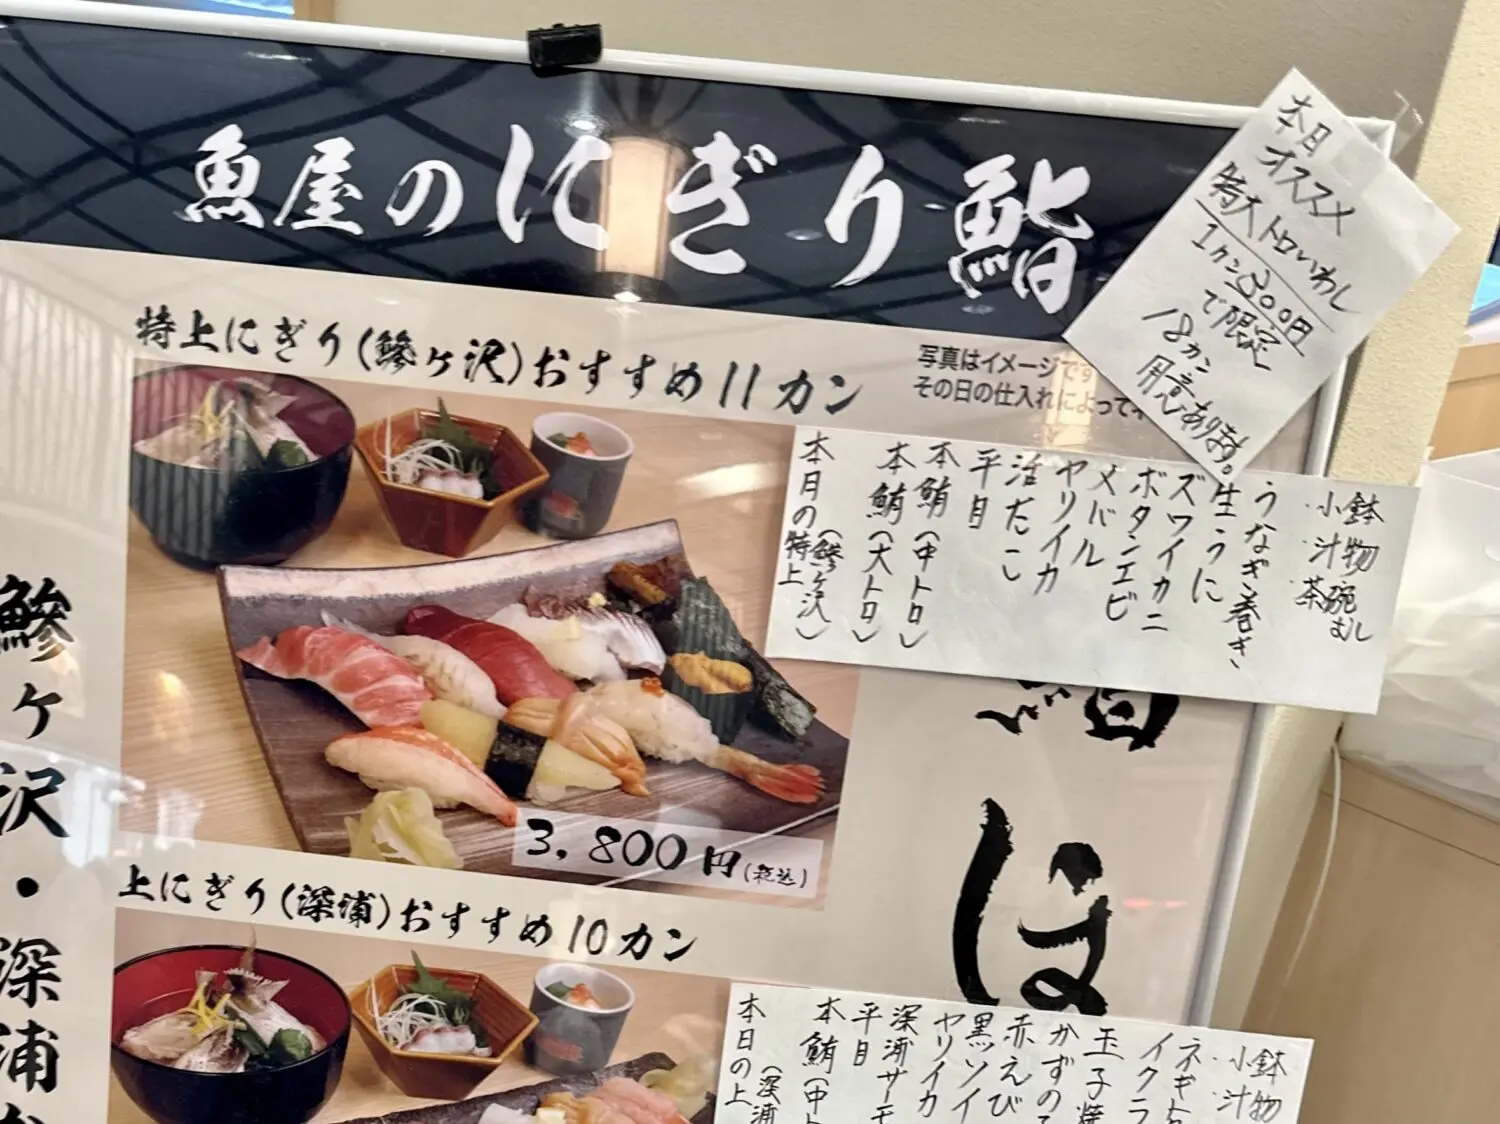 魚屋のにぎり鮨
本日
オススメ
特大トロいわし
1カン300円
で限定
18カン
用意あります。
特上にぎり(鰺ヶ沢)おすすめ11カン
写真はイメージです
その日の仕入れによって
本日の特上
(鰺ヶ沢)
本鮪(大トロ)
本鮪(中トロ)
平目
活たこ
ヤリイカ
メバル
ボタンエビ
ズワイカニ
生うに
うなぎ巻き
・小鉢
・汁物
・茶碗むし
3,800円(税込)
上にぎり(深浦)おすすめ10カン
本日の上
(深浦
本鮪(中ト
平目
深浦サーモ
ヤリイカ
黒ソイ
赤えび
かずの
玉子焼
イクラ
ネギト
・小鉢
・汁物
鰺ヶ沢・深浦
鮨
は